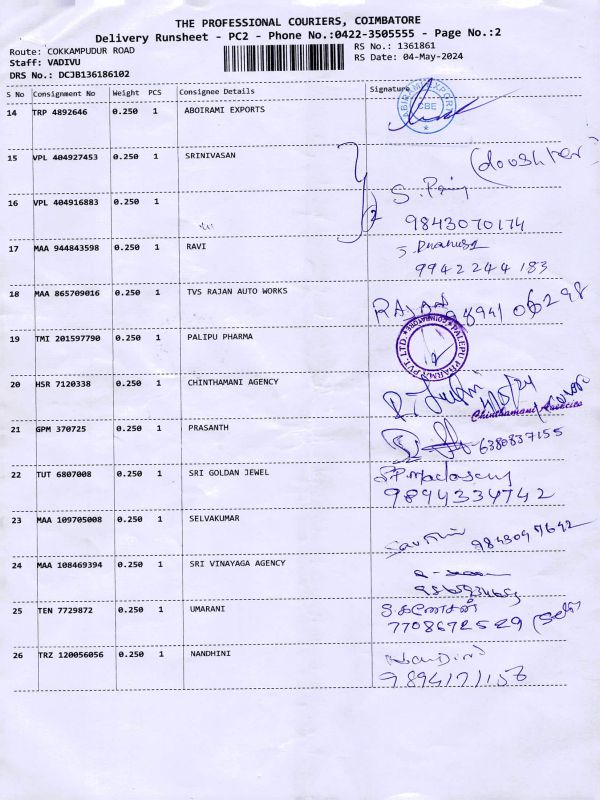 THE PROFESSIONAL COURIERS, COIMBATORE
Delivery Runsheet - PC2 - Phone No.:0422-3505555 - Page No.:2
Route: COKKAMPUDUR ROAD
Staff: VADIVU
DRS No.: DCJB136186102
RS No.: 1361861
RS Date: 04-May-2024
S No Consignment No Weight PCS Consignee Details Signature
14 TRP 4892646 0.250 1 ABOIRAMI EXPORTS
CBE
15 VPL 404927453 0.250 1 SRINIVASAN
16 VPL 404916883 0.250 1
2
9843070174
17 MAA 944843598 0.250 1 RAVI
9942244183
18 MAA 865709016 0.250 1 TVS RAJAN AUTO WORKS RAJAN
19 TMI 201597790 0.250 1 PALIPU PHARMA
PALEPU PHARMA PVT. LTD. COIMBATORE
20 HSR 7120338 0.250 1 CHINTHAMANI AGENCY
4/5/24
Chinthamani Agencies
21 GPM 370725 0.250 1 PRASANTH
6380837155
22 TUT 6807008 0.250 1 SRI GOLDAN JEWEL
9894334742
23 MAA 109705008 0.250 1 SELVAKUMAR
9843047642
24 MAA 108469394 0.250 1 SRI VINAYAGA AGENCY
25 TEN 7729872 0.250 1 UMARANI
S.கணேசன்
7708672529
26 TRZ 120056056 0.250 1 NANDHINI
Nandini